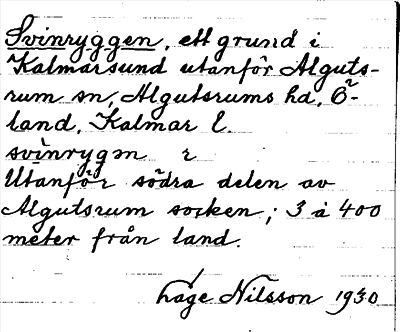 Svinryggen, ett grund i
Kalmarsund utanför Alguts-
rum sn, Algutsrums hd, Ö-
land, Kalmar l.
svinrygən
Utanför södra delen av
Algutsrum socken; 3 à 400
meter från land.
Nilsson 1930